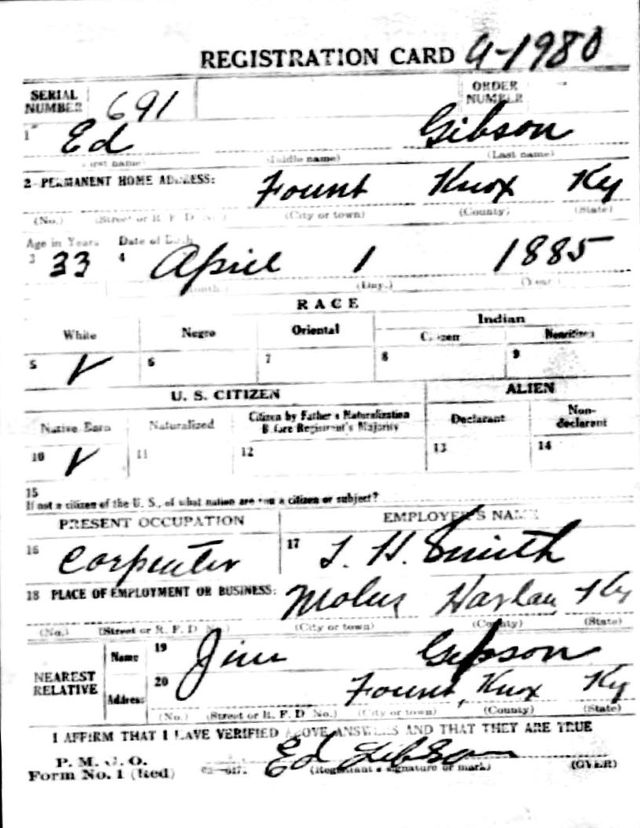 REGISTRATION CARD a-1980
SERIAL NUMBER 691 ORDER NUMBER
1 Ed Gibson
(First name) (Middle name) (Last name)
2 PERMANENT HOME ADDRESS: Fount Knox Ky
(No.) (Street or R. F. D. No.) (City or town) (County) (State)
Age in Years Date of Birth
3 33 4 April 1 1885
(Month.) (Day.) (Year.)
RACE
White Negro Oriental Indian
Citizen Noncitizen
5 ✓ 6 7 8 9
U. S. CITIZEN ALIEN
Native Born Naturalized Citizen by Father's Naturalization Before Registrant's Majority Declarant Non-declarant
10 ✓ 11 12 13 14
15
If not a citizen of the U. S., of what nation are you a citizen or subject?
PRESENT OCCUPATION EMPLOYER'S NAME
16 Carpenter 17 H. Smith
18 PLACE OF EMPLOYMENT OR BUSINESS: Harlan Ky
(No.) (Street or R. F. D. No.) (City or town) (County) (State)
NEAREST RELATIVE Name 19 Jim Gipson
Address 20 Fount, Knox Ky
(No.) (Street or R. F. D. No.) (City or town) (County) (State)
I AFFIRM THAT I HAVE VERIFIED ABOVE ANSWERS AND THAT THEY ARE TRUE
P. M. G. O.
Form No. 1 (Red) Ed Gibson
(Registrant's signature or mark) (OVER)